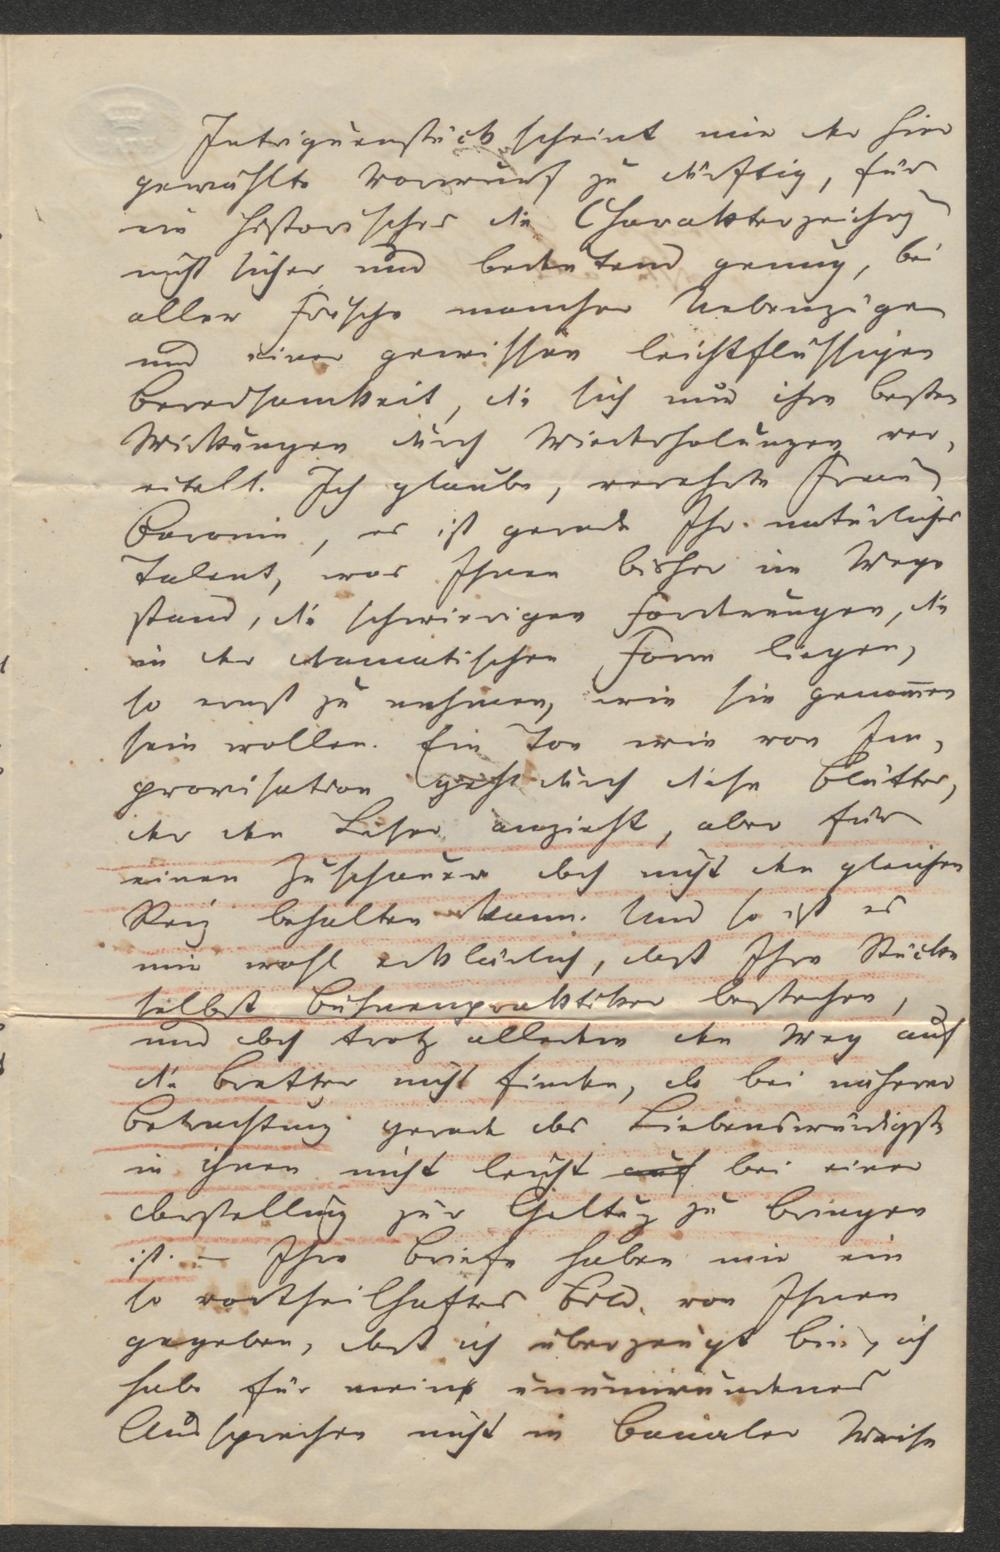 Intriguenstück scheint mir der hier
gewählte Vorwurf zu dürftig, für
ein historisches die Charakterzeichng
nicht sicher und bedeutend genug, bei
aller Frische mancher Nebenzüge
und einer gewissen leichtflüssigen
Beredsamkeit, die sich nur ihre besten
Wirkungen durch Wiederholungen ver-
eitelt. Ich glaube, verehrte Frau
Baronin, es ist gerade Ihr natürliches
Talent, was Ihnen bisher im Wege
stand, die schwierigen Forderungen, die
in der dramatischen Form liegen,
so ernst zu nehmen, wie sie genommen
sein wollen. Ein Ton wie von Im-
provisation geht durch diese Blätter,
der den Leser anzieht, aber für
einen Zuschauer doch nicht den gleichen
Reiz behalten kann. Und so ist es
mir wohl erklärlich, daß Ihre Stücke
selbst Bühnenpraktiker bestechen,
und doch trotz alledem den Weg auf
die Bretter nicht finden, da bei näherer
Betrachtung gerade das Liebenswürdigste
in ihnen nicht leicht auf bei einer
Darstellung zur Geltug zu bringen
ist. – Ihre Briefe haben mir ein
so vortheilhaftes Bild von Ihnen
gegeben, daß ich überzeugt bin, ich
habe für mein unumwundenes
Aussprechen nicht in banaler Weise